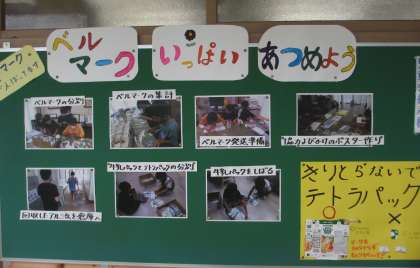 ベル
マーク
いっぱい
あつめよう
マーク
ベルマークの分別
ベルマークの集計
ベルマーク発送準備
協力よびかけのポスター作り
牛乳パックとテトラパックの分別
牛乳パックをしばる
回収したアルミ缶を倉庫へ
きりとらないで
テトラパック
○
×